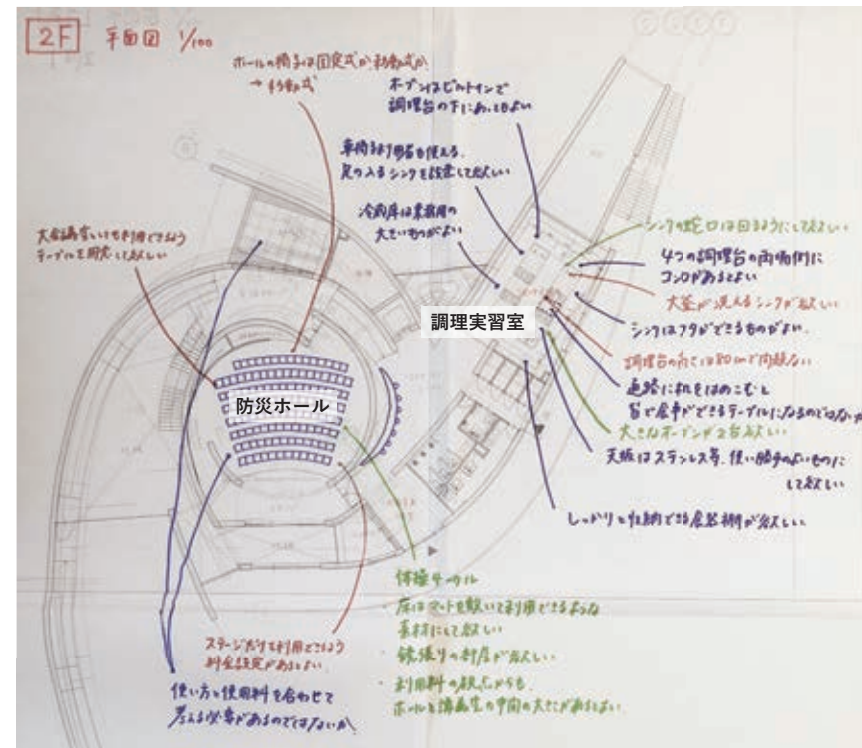 2F 平面図 1/100
ホールの椅子は固定式か、移動式か
→ 移動式
オーブンはビルトインで
調理台の下にあってもよい
車椅子利用者も使える、
足の入るシンクを設置して欲しい
冷蔵庫は業務用の
大きいものがよい
大会議室としても利用できるよう
テーブルを用意して欲しい
シンクの蛇口は回るようにして欲しい
4つの調理台の両端側に
コンロがあるとよい
大釜が洗えるシンクが欲しい
調理実習室
シンクはフタができるものがよい。
調理台の高さは80cmで問題ない
防災ホール
通路に机をはめこむと
皆で食事ができるテーブルになるのではないか
大きなオーブンが2台欲しい
天板はステンレス等、使い勝手のよいものに
して欲しい
しっかりと収納できる食器棚が欲しい
体操サークル
・床はマットを敷いて利用できるような
素材にして欲しい
・鏡張りの部屋が欲しい
・利用料の観点からも、
ホールと講義室の中間の大きさがあるとよい
ステージだけでも利用できるよう
料金設定があるとよい
使い方と使用料を合わせて
考える必要があるのではないか